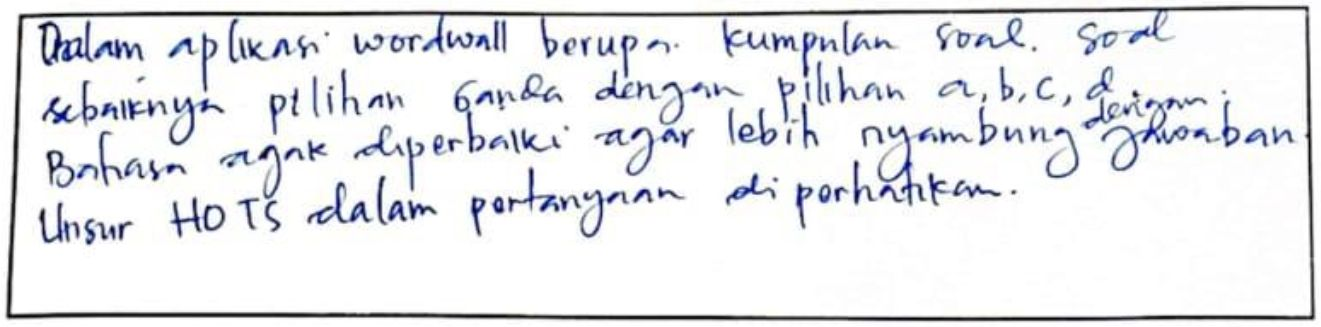 Dalam aplikasi wordwall berupa kumpulan soal. Soal
sebaiknya pilihan ganda dengan pilihan a, b, c, d.
Bahasa agak diperbaiki agar lebih nyambung dengan jawaban.
Unsur HOTS dalam pertanyaan diperhatikan.